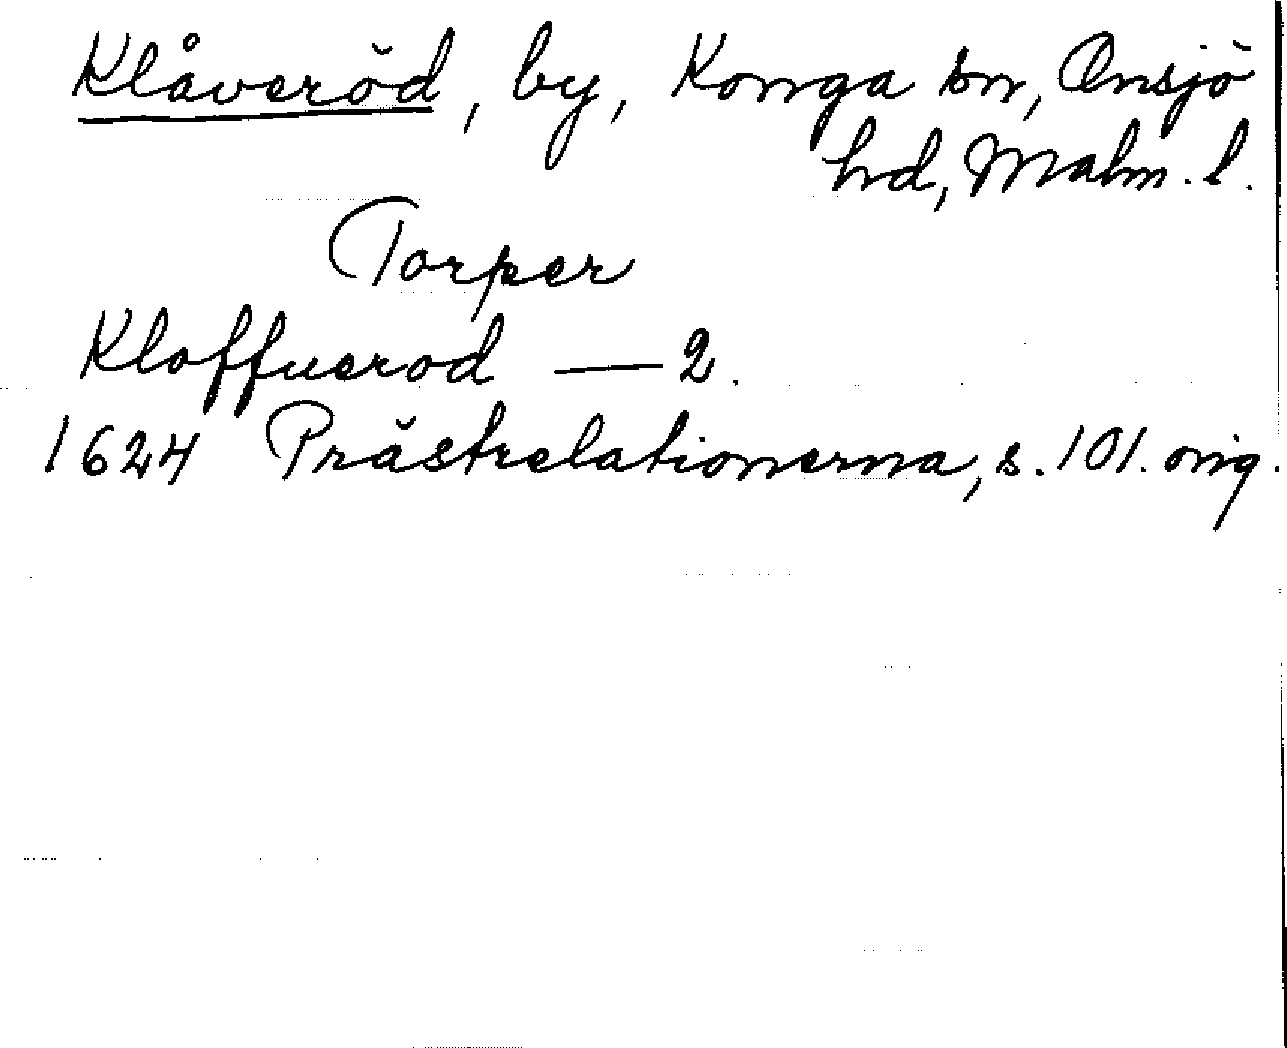 Klåveröd, by, Konga sn, Onsjö
hd, Malm. l.
Torper
Kloffuerod — 2.
1624 Prästrelationerna, s. 101. orig.